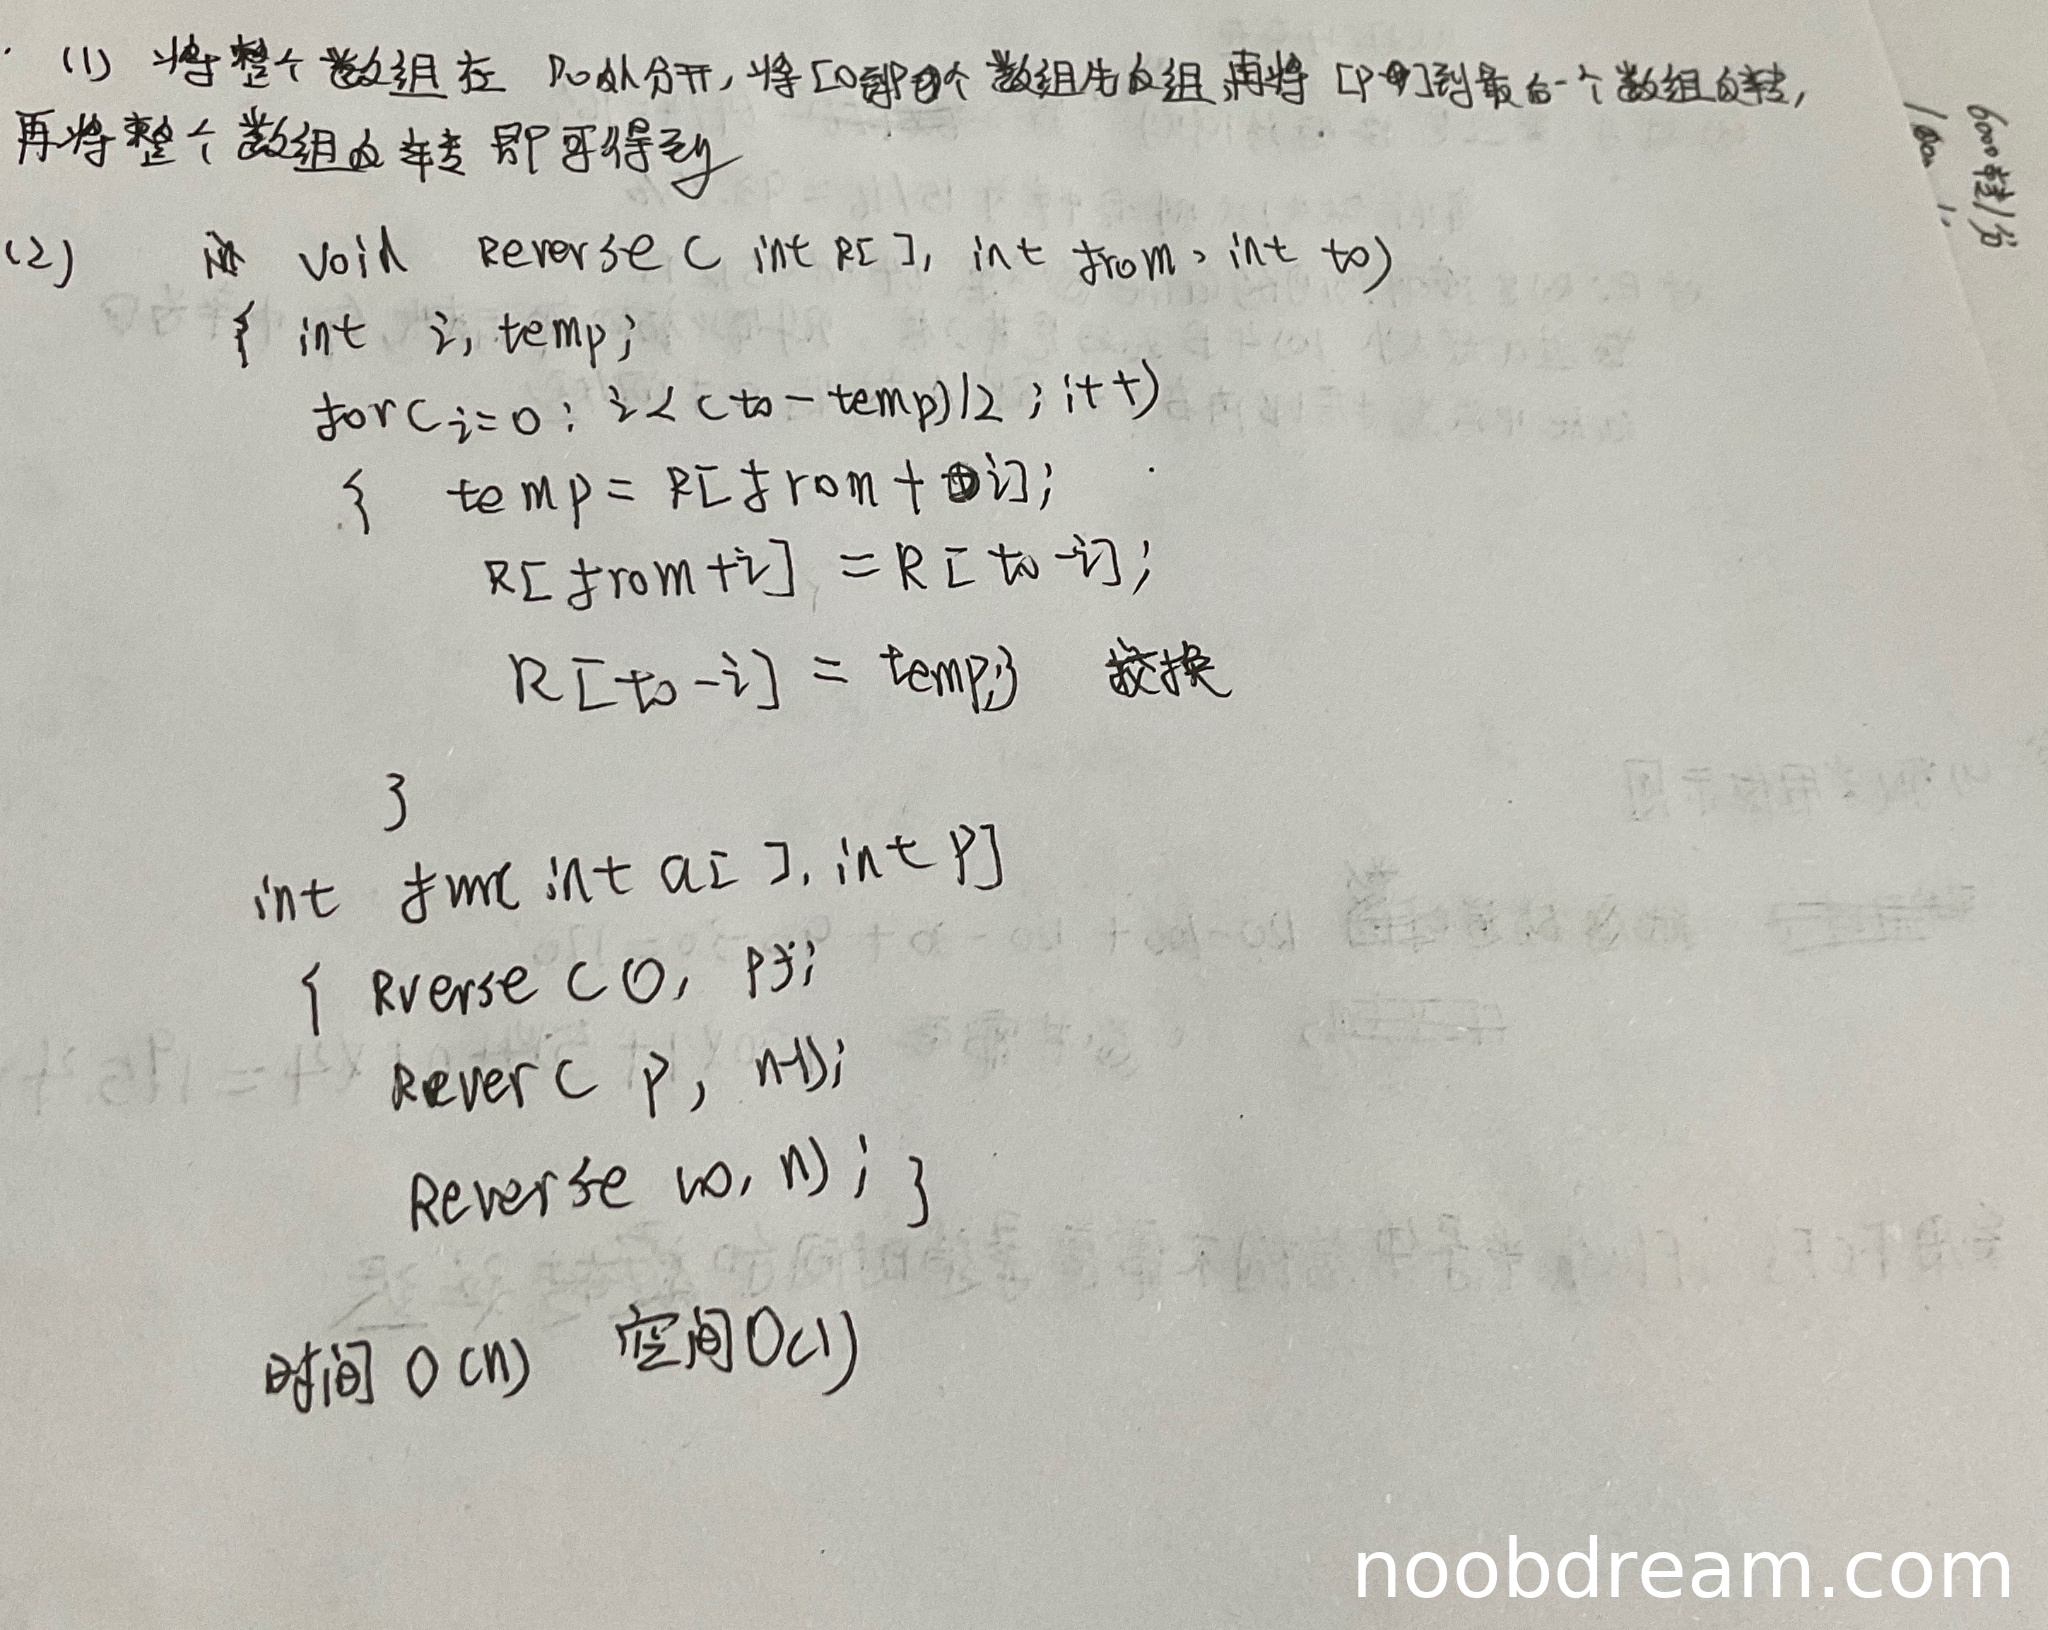 (1) 将整个数组在 P0处分开,将[0到P个数组先反组,再将[P]到最后一个数组反转,
再将整个数组反转即可得到
(2) void Reverse( int R[], int from, int to)
{ int i, temp;
for(i=0; i<(to-temp)/2; i++)
{ temp = R[from+i];
R[from+i] = R[to-i];
R[to-i] = temp;} 交换
}
int func int a[], int P]
{ Rverse(0, P);
Rever( P, n-1);
Reverse (0, n); }
时间 O(n) 空间O(1)
6000转/分
noobdream.com